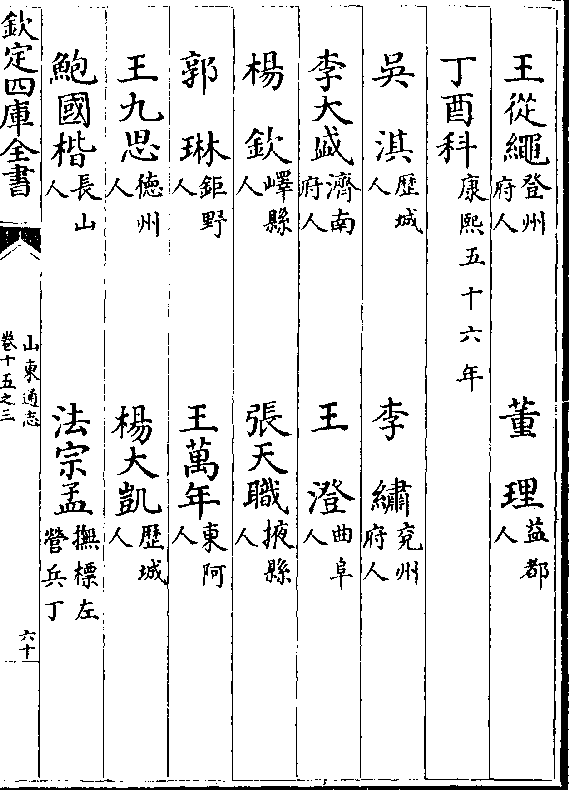 王從繩登州府人　董理益都人
丁酉科康熙五十六年
吳淇歷城人　李繡兖州府人
李大盛濟南府人　王澄曲阜人
楊欽嶧縣人　張天職掖縣人
郭琳鉅野人　王萬年東阿人
王九思德州人　楊大凱歷城人
鮑國楷長山人　法宗孟撫標左營兵丁
欽定四庫全書　山東通志卷十五之三　六十